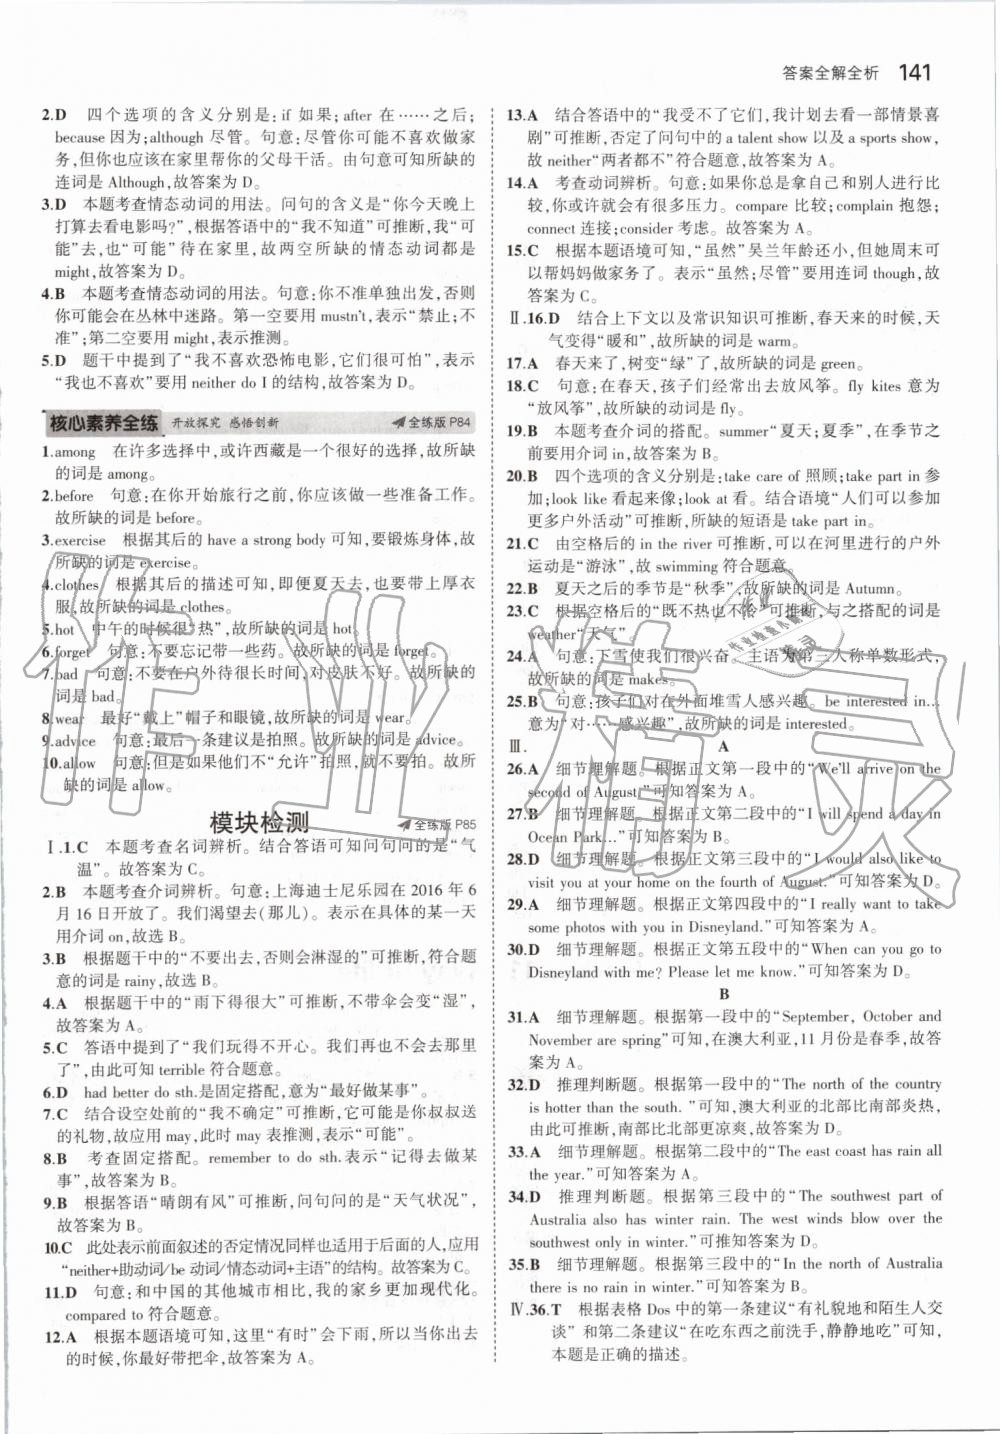 答案全解全析 141
2.D 四个选项的含义分别是:if 如果;after 在……之后;
because 因为;although 尽管。句意:尽管你可能不喜欢做家
务,但你也应该在家里帮你的父母干活。由句意可知所缺的
连词是 Although,故答案为 D。
3.D 本题考查情态动词的用法。问句的含义是“你今天晚上
打算去看电影吗?”,根据答语中的“我不知道”可推断,我“可
能”去,也“可能”待在家里,故两空所缺的情态动词都是
might,故答案为 D。
4.B 本题考查情态动词的用法。句意:你不准单独出发,否则
你可能会在丛林中迷路。第一空要用 mustn't,表示“禁止;不
准”;第二空要用 might,表示推测。
5.D 题干中提到了“我不喜欢恐怖电影,它们很可怕”,表示
“我也不喜欢”要用 neither do I 的结构,故答案为 D。
核心素养全练 开放探究 感悟创新 全练版 P84
1.among 在许多选择中,或许西藏是一个很好的选择,故所缺
的词是 among。
2.before 句意:在你开始旅行之前,你应该做一些准备工作。
故所缺的词是 before。
3.exercise 根据其后的 have a strong body 可知,要锻炼身体,故
所缺的词是 exercise。
4.clothes 根据其后的描述可知,即便夏天去,也要带上厚衣
服,故所缺的词是 clothes。
5.hot 中午的时候很“热”,故所缺的词是 hot。
6.forget 句意:不要忘记带一些药。故所缺的词是 forget。
7.bad 句意:不要在户外待得很长时间,对皮肤不好。故所缺的
词是 bad。
8.wear 最好“戴上”帽子和眼镜,故所缺的词是 wear。
9.advice 句意:最后一条建议是拍照。故所缺的词是 advice。
10.allow 句意:但是如果他们不“允许”拍照,就不要拍。故所
缺的词是 allow。
模块检测 全练版 P85
Ⅰ.1.C 本题考查名词辨析。结合答语可知问句问的是“气
温”。故答案为 C。
2.B 本题考查介词辨析。句意:上海迪士尼乐园在 2016 年 6
月 16 日开放了。我们渴望去(那儿)。表示在具体的某一天
用介词 on,故选 B。
3.B 根据题干中的“不要出去,否则会淋湿的”可推断,符合题
意的词是 rainy,故选 B。
4.A 根据题干中的“雨下得很大”可推断,不带伞会变“湿”,
故答案为 A。
5.C 答语中提到了“我们玩得不开心。我们再也不会去那里
了”,由此可知 terrible 符合题意。
6.D had better do sth.是固定搭配,意为“最好做某事”。
7.C 结合设空处前的“我不确定”可推断,它可能是你叔叔送
的礼物,故应用 may,此时 may 表推测,表示“可能”。
8.B 考查固定搭配。remember to do sth.表示“记得去做某
事”,故答案为 B。
9.B 根据答语“晴朗有风”可推断,问句问的是“天气状况”,
故答案为 B。
10.C 此处表示前面叙述的否定情况同样也适用于后面的人,应用
“neither+助动词/be 动词/情态动词+主语”的结构。故答案为 C。
11.D 句意:和中国的其他城市相比,我的家乡更加现代化。
compared to 符合题意。
12.A 根据本题语境可知,这里“有时”会下雨,所以当你出去
的时候,你最好带把伞,故答案为 A。
13.A 结合答语中的“我受不了它们,我计划去看一部情景喜
剧”可推断,否定了问句中的 a talent show 以及 a sports show,
故 neither“两者都不”符合题意,故答案为 A。
14.A 考查动词辨析。句意:如果你总是拿自己和别人进行比
较,你或许就会有很多压力。compare 比较;complain 抱怨;
connect 连接;consider 考虑。故答案为 A。
15.C 根据本题语境可知,“虽然”吴兰年龄还小,但她周末可
以帮妈妈做家务了。表示“虽然;尽管”要用连词 though,故
答案为 C。
Ⅱ.16.D 结合上下文以及常识知识可推断,春天来的时候,天
气变得“暖和”,故所缺的词是 warm。
17.A 春天来了,树变“绿”了,故所缺的词是 green。
18.C 句意:在春天,孩子们经常出去放风筝。fly kites 意为
“放风筝”,故所缺的动词是 fly。
19.B 本题考查介词的搭配。summer“夏天;夏季”,在季节之
前要用介词 in,故答案为 B。
20.B 四个选项的含义分别是:take care of 照顾;take part in 参
加;look like 看起来像;look at 看。结合语境“人们可以参加
更多户外活动”可推断,所缺的短语是 take part in。
21.C 由空格后的 in the river 可推断,可以在河里进行的户外
运动是“游泳”,故 swimming 符合题意。
22.B 夏天之后的季节是“秋季”,故所缺的词是 Autumn。
23.C 根据空格后的“既不热也不冷”可推断,与之搭配的词是
weather“天气”。
24.A 句意:下雪使我们很兴奋。主语为第三人称单数形式,
故所缺的词是 makes。
25.B 句意:孩子们对在外面堆雪人感兴趣。be interested in...
意为“对……感兴趣”,故所缺的词是 interested。
Ⅲ. A
26.A 细节理解题。根据正文第一段中的“We'll arrive on the
second of August”可知答案为 A。
27.B 细节理解题。根据正文第二段中的“I will spend a day in
Ocean Park...”可知答案为 B。
28.D 细节理解题。根据正文第三段中的“I would also like to
visit you at your home on the fourth of August.”可知答案为 D。
29.A 细节理解题。根据正文第四段中的“I really want to take
some photos with you in Disneyland.”可知答案为 A。
30.D 细节理解题。根据正文第五段中的“When can you go to
Disneyland with me? Please let me know.”可知答案为 D。
B
31.A 细节理解题。根据第一段中的“September, October and
November are spring”可知,在澳大利亚,11 月份是春季,故答
案为 A。
32.D 推理判断题。根据第一段中的“The north of the country
is hotter than the south. ”可知,澳大利亚的北部比南部炎热,
由此可推断,南部比北部更凉爽,故答案为 D。
33.A 细节理解题。根据第二段中的“The east coast has rain all
the year.”可知答案为 A。
34.D 推理判断题。根据第三段中的“The southwest part of
Australia also has winter rain. The west winds blow over the
southwest only in winter.”可推知答案为 D。
35.B 细节理解题。根据第三段中的“In the north of Australia
there is no rain in winter.”可知答案为 B。
Ⅳ.36.T 根据表格 Dos 中的第一条建议“有礼貌地和陌生人交
谈” 和第二条建议“在吃东西之前洗手,静静地吃”可知,
本题是正确的描述。
作业精灵